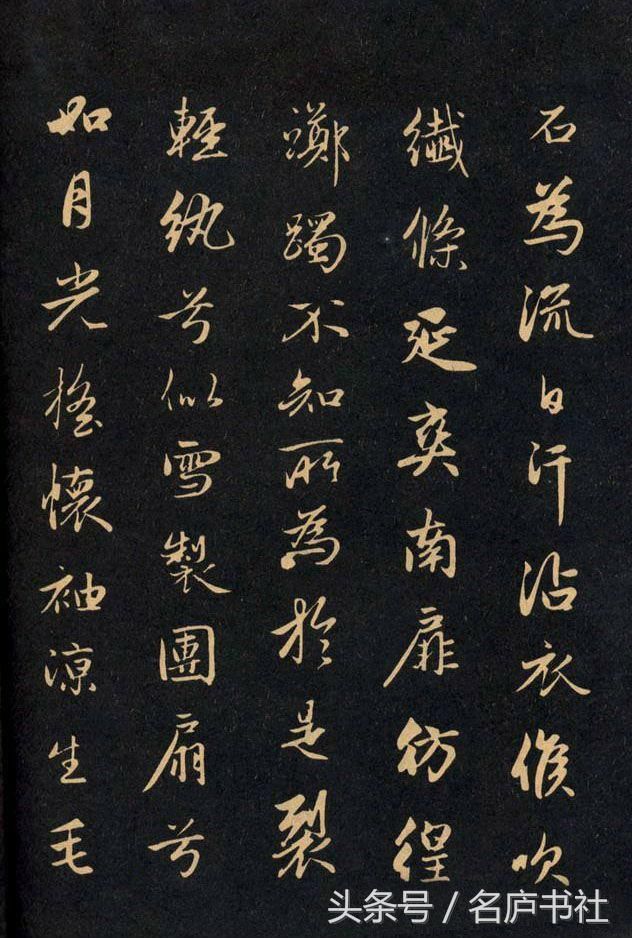 石為流日汗沾衣候吹
纎條延爽南扉彷徨
躑躅不知所為於是裂
輕紈兮似雪製團扇兮
如月光摇懷袖凉生毛
头条号 / 名庐书社